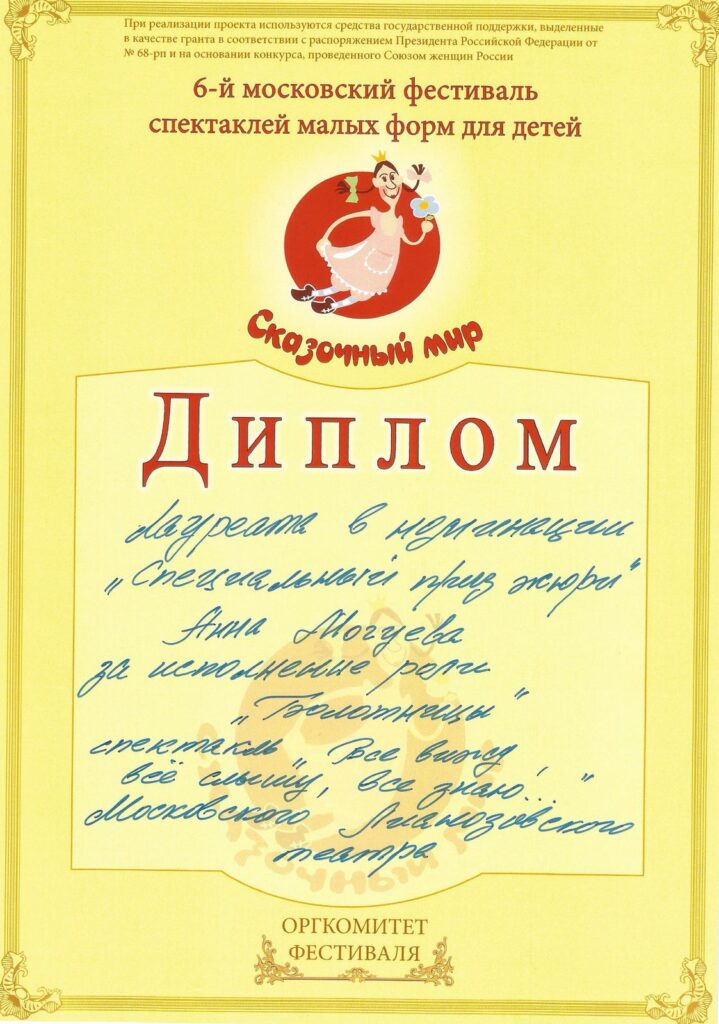 При реализации проекта используются средства государственной поддержки, выделенные
в качестве гранта в соответствии с распоряжением Президента Российской Федерации от
№ 68-рп и на основании конкурса, проведенного Союзом женщин России
6-й московский фестиваль
спектаклей малых форм для детей
Сказочный мир
Диплом
Лауреата в номинации
„Специальный приз жюри"
Анна Могуева
за исполнение роли
„Болотницы"
спектакль „Все вижу,
всё слышу, все знаю!..."
Московского Лианозовского
театра
ОРГКОМИТЕТ
ФЕСТИВАЛЯ